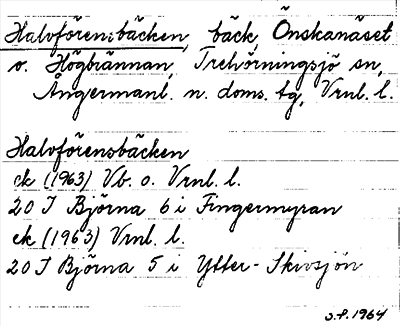 Halvförensbäcken, bäck, Önskanäset
o. Högbrännan, Trehörningsjö sn,
Ångermanl. n. doms. tg, Vrnl. l.
Halvförensbäcken
ek (1963) Vb. o. Vrnl. l.
20 I Björna 6 i Fingermyran
ek (1963) Vrnl. l.
20 I Björna 5 i Ytter-Skivsjön
1964